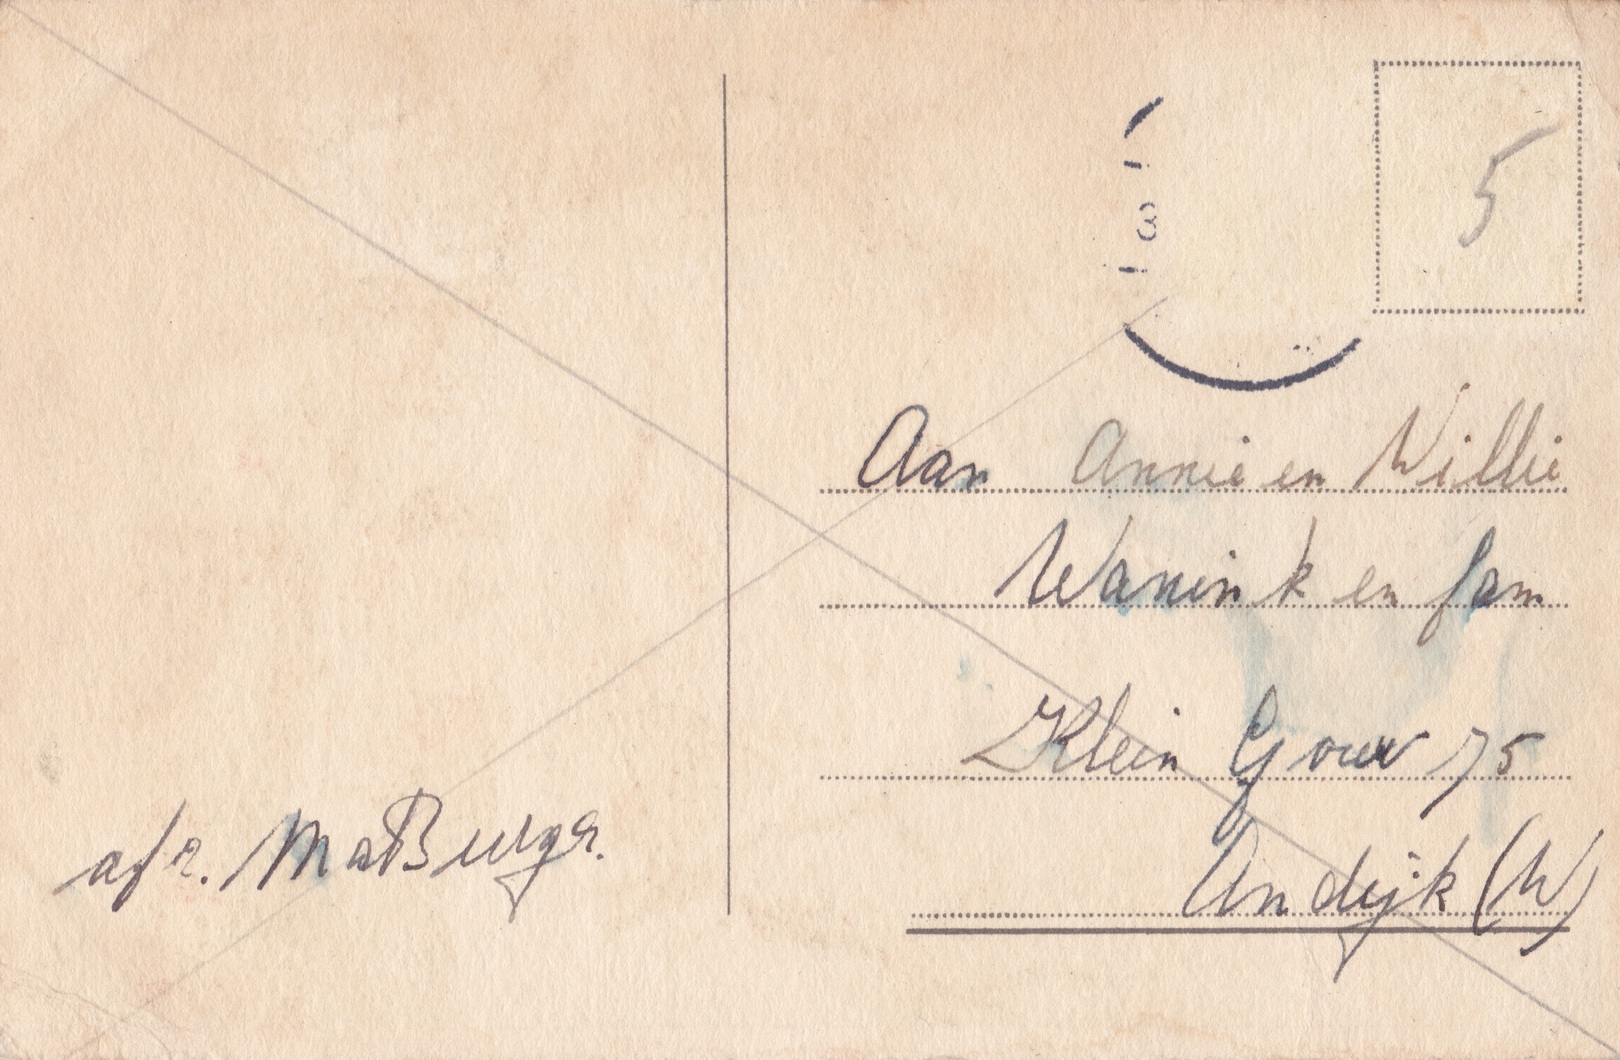 3
5
Aan Annie en Willie
Wanink en fam
Klein Gouw 75
Andijk (W)
afz. Ma Burger.